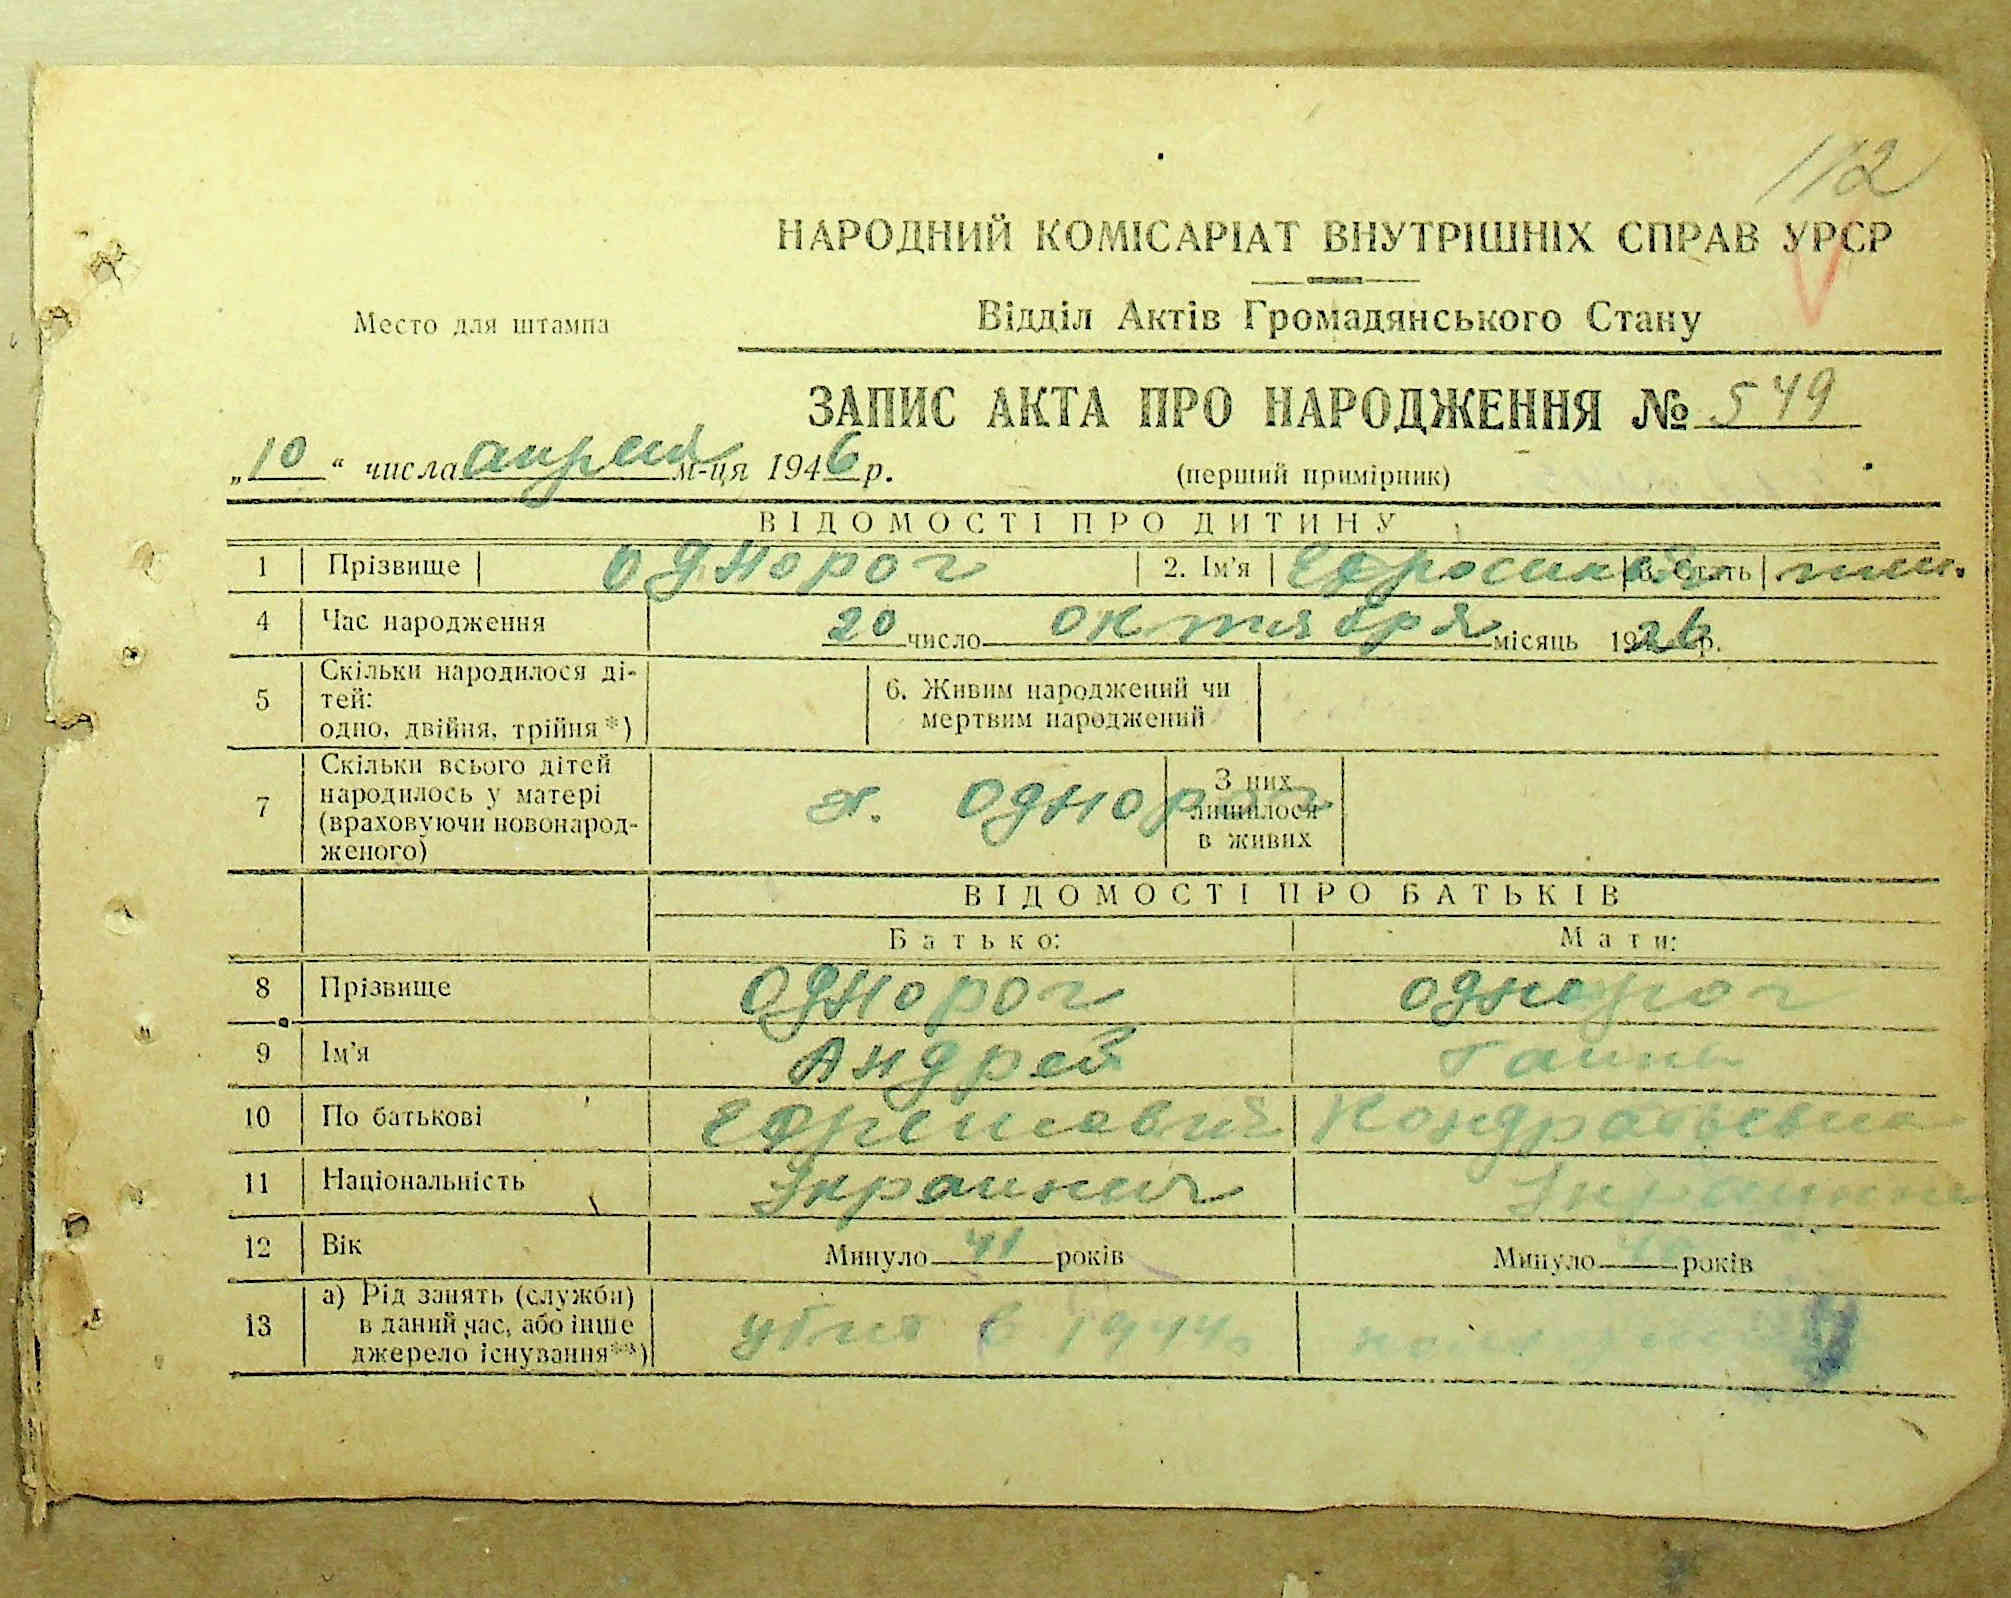 112
НАРОДНИЙ КОМІСАРІАТ ВНУТРІШНІХ СПРАВ УРСР
Место для штампа
Відділ Актів Громадянського Стану
ЗАПИС АКТА ПРО НАРОДЖЕННЯ № 549
„10“ числа апреля м-ця 1946 р.
(перший примірник)
ВІДОМОСТІ ПРО ДИТИНУ
1 Прізвище Однорог 2. Ім'я 3. Стать
4 Час народження 20 число октября місяць 1926 р.
5 Скільки народилося ді-
тей:
одно, двійня, трійня*)
6. Живим народжений чи
мертвим народжений
7 Скільки всього дітей
народилось у матері
(враховуючи новонарод-
женого)
х. Однорог
З них
лишилося
в живих
ВІДОМОСТІ ПРО БАТЬКІВ
Батько: Мати:
8 Прізвище Однорог Однорог
9 Ім'я Андрей Ганна
10 По батькові Ефремович Кондратьевна
11 Національність
12 Вік Минуло 41 років Минуло років
13 а) Рід занять (служби)
в даний час, або інше
джерело існування**)
убит в 1944г